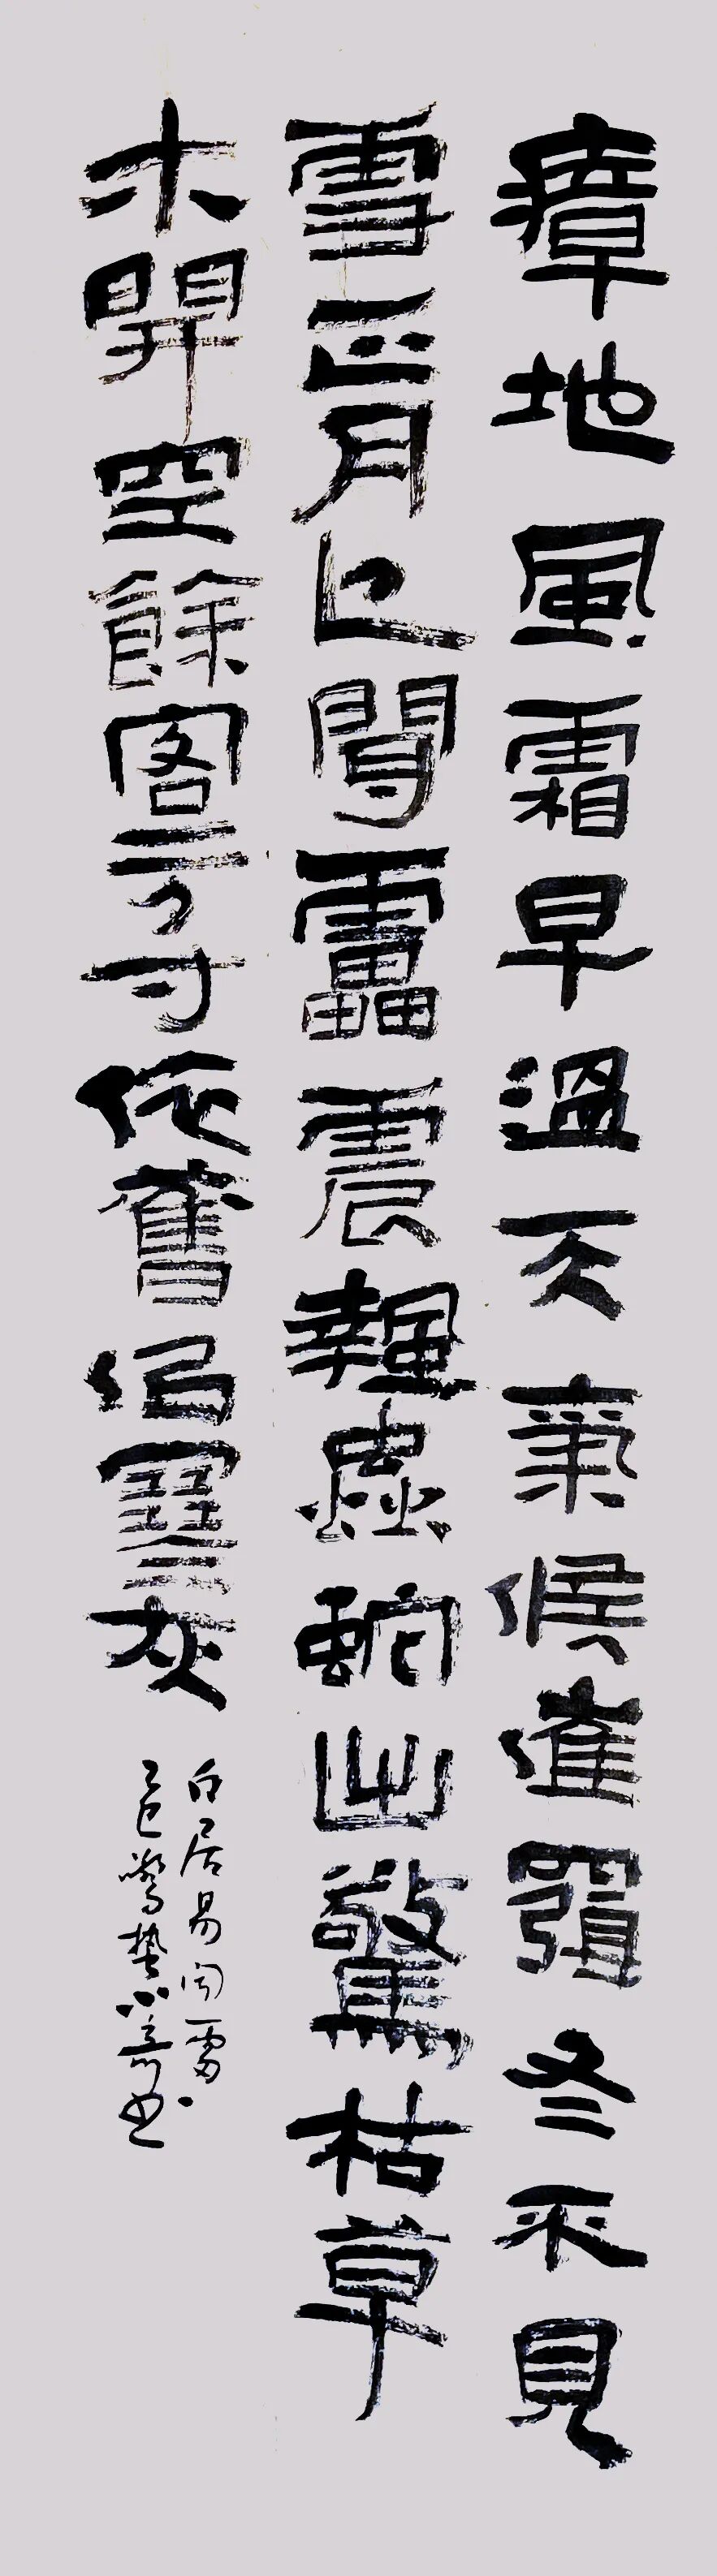 瘴地風霜早溫天氣候催窮冬不見
雪正月已聞雷震蟄蟲虵出驚枯草
木開空餘客方寸依舊似寒灰
白居易闻雷
乙巳驚蟄书